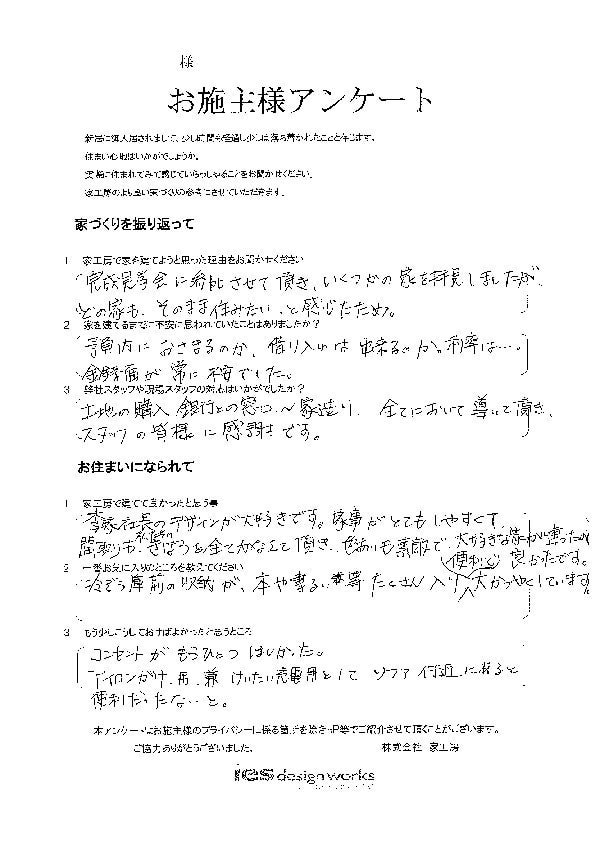 様
お施主様アンケート
新居に御入居されまして、少し時間も経過し少しは落ち着かれたことと存じます。
住まい心地はいかがでしょうか。
実際に住まれてみて感じていらっしゃることをお聞かせください。
家工房のより良い家づくりの参考にさせていただきます。
家づくりを振り返って
1 家工房で家を建てようと思った理由をお聞かせください
完成見学会に参加させて頂き、いくつかの家を拝見しましたが、
どの家も、そのまま住みたい、と感じたため。
2 家を建てるまでに不安に思われていたことはありましたか？
予算内におさまるのか、借り入れは出来るのか。利率は…。
金銭面が常に不安でした。
3 弊社スタッフや現場スタッフの対応はいかがでしたか？
土地の購入、銀行との窓口、〜家造り、全てにおいて導いて頂き、
スタッフの皆様に感謝です。
お住まいになられて
1 家工房で建てて良かったと思う事
社長のデザインが大好きです。家事がとてもしやすくて、
間取りも、きぼうを全てかなえて頂き、色あいも素敵で、大好きな家が建ったので
良かったです。
2 一番お気に入りのところを教えてください
冷ぞう庫前の収納が、本や書るい等 たくさん入り 便利で 大かつやくしています。
3 もう少しこうしておけばよかったと思うところ
コンセントがもうひとつほしかった。
アイロンがけ用 兼 けいたい充電用として ソファ付近にあると
便利だったな、と。
本アンケートはお施主様のプライバシーに係る箇所を除きHP等でご紹介させて頂くことがございます。
ご協力ありがとうございました。 株式会社 家工房
ies design works